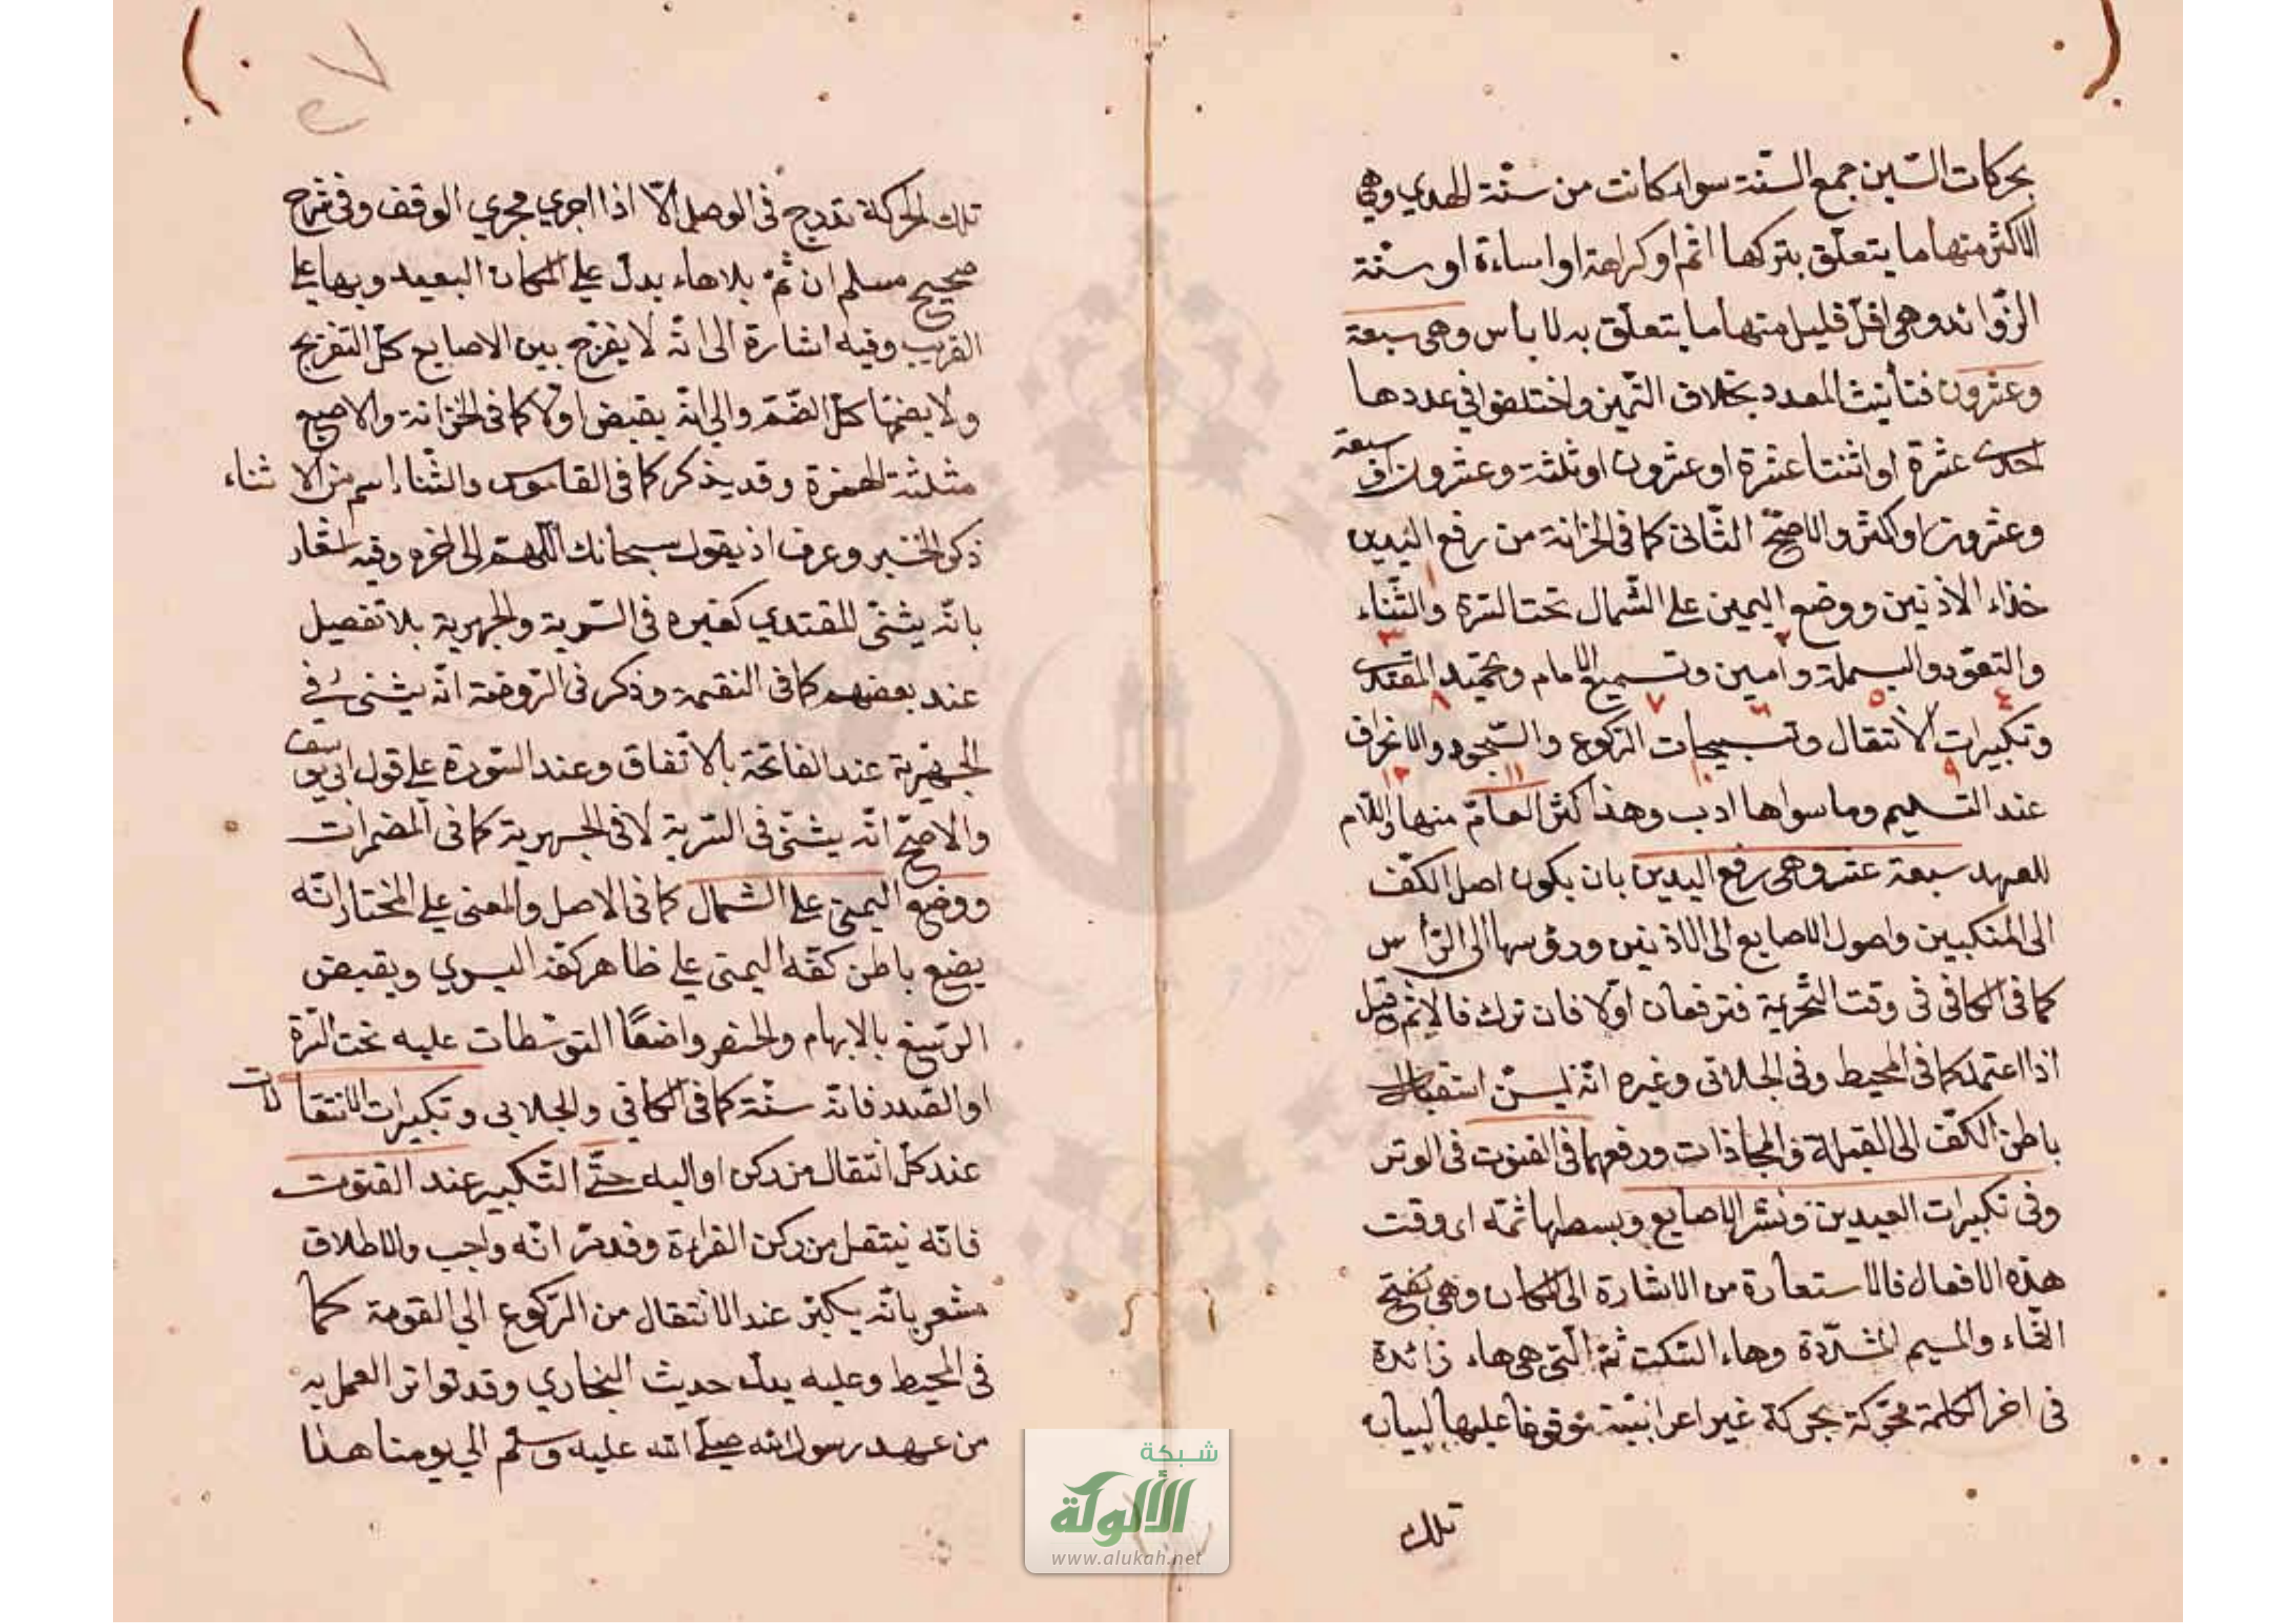 بحركات السّين جمع السنّة سواء كانت من سنّة الهدي وهي
الاكثر منها ما يتعلّق بتركها اثم او كراهة او اساءة او سنّة
الزّوائد وهي اقلّ قليل منها ما يتعلّق به لا باس وهي سبعة
وعشرون فتأنيث العدد بخلاف التّمييز واختلفوا في عددها
احدى عشرة او اثنتا عشرة او عشرون او ثلثة وعشرون او سبعة
وعشرون او اكثر والاصحّ الثّاني كما في الخزانة من رفع اليدين
حذاء الاذنين ووضع اليمين على الشّمال تحت السّرة والثّناء
١ ٢ ٣
والتعوّذ والبسملة وامين وتسميع الامام وتحميد المقتدى
٤ ٥ ٦ ٧ ٨
وتكبيرات الانتقال وتسبيحات الرّكوع والسّجود والانحراف
٩ ١٠ ١١ ١٢
عند التسليم وما سواها ادب وهذا كثر العامّ منها واللّام
للعهد سبعة عشر وهي رفع اليدين بان يكون اصل الكفّ
الى المنكبين واصول الاصابع الى الاذنين ورؤسها الى الرّأس
كما في الكافي في وقت التّحريمة فترفعان اوّلا فان ترك فالاثم قيل
اذا اعتمد كما في المحيط وفي الجلابي وغيره انّه ليسنّ استقبال
باطن الكفّ الى القبلة والمحاذات ورفعهما في القنوت في الوتر
وفي تكبيرات العيدين ونشر الاصابع وبسطها ثمّه اى وقت
هذه الافعال فالاستعارة من الاشارة الى المكان وهي بفتح
الثاء والميم المشدّدة وهاء السّكت ثمّ الّتي هي هاء زائدة
في اخر الكلمة محرّكة بحركة غير اعرابيّة موقوفا عليها لبيان
تلك
٢٧
تلك الحركة تدرج في الوصل الّا اذا اجري مجري الوقف وفي شرح
صحيح مسلم ان ثمّ بلا هاء يدلّ على المكان البعيد وبها على
القريب وفيه اشارة الى انّه لا يفرّج بين الاصابع كلّ التفريج
ولا يضمّها كلّ الضّمّ والى انّه يقبض اوّلا كما في الخزانة والاصبع
مثلثة الهمزة وقد يذكر كما في القاموس والثّناء اسم من الاثناء
ذكر الخير وعرف اذ يقول سبحانك اللّهمّ الى اخره وفيه اشعار
بانّه يثنّى المقتدي كغيره في السّرية والجهرية بلا تفصيل
عند بعضهم كما في النقمة وذكر في الرّوضة انّه يثنى في
الجهرية عند الفاتحة بالاتّفاق وعند السّورة على قول ابي يوسف
والاصحّ انّه يثنّى في السّرية لا في الجهرية كما في المضمرات
ووضع اليمنى على الشّمال كما في الاصل والمعنى على المختار انّه
يضع باطن كفّه اليمنى على ظاهر كفّه اليسري ويقبض
الرّسغ بالابهام والخنصر واضعًا المتوسّطات عليه تحت السّرة
او الصّدر فانّه سنّة كما في الكافي والجلابي وتكبيرات الانتقالات
عند كلّ انتقال من ركن او اليه حتّى التّكبير عند القنوت
فانّه ينتقل من ركن القراءة وقد مرّ انّه واجب والاطلاق
مشعر بانّه يكبّر عند الانتقال من الرّكوع الى القومة كما
في المحيط وعليه يدلّ حديث البخاري وقد تواتر العمل به
من عهد رسول الله صلى الله عليه وسلّم الي يومنا هذا
شبكة
الألوكة
www.alukah.net